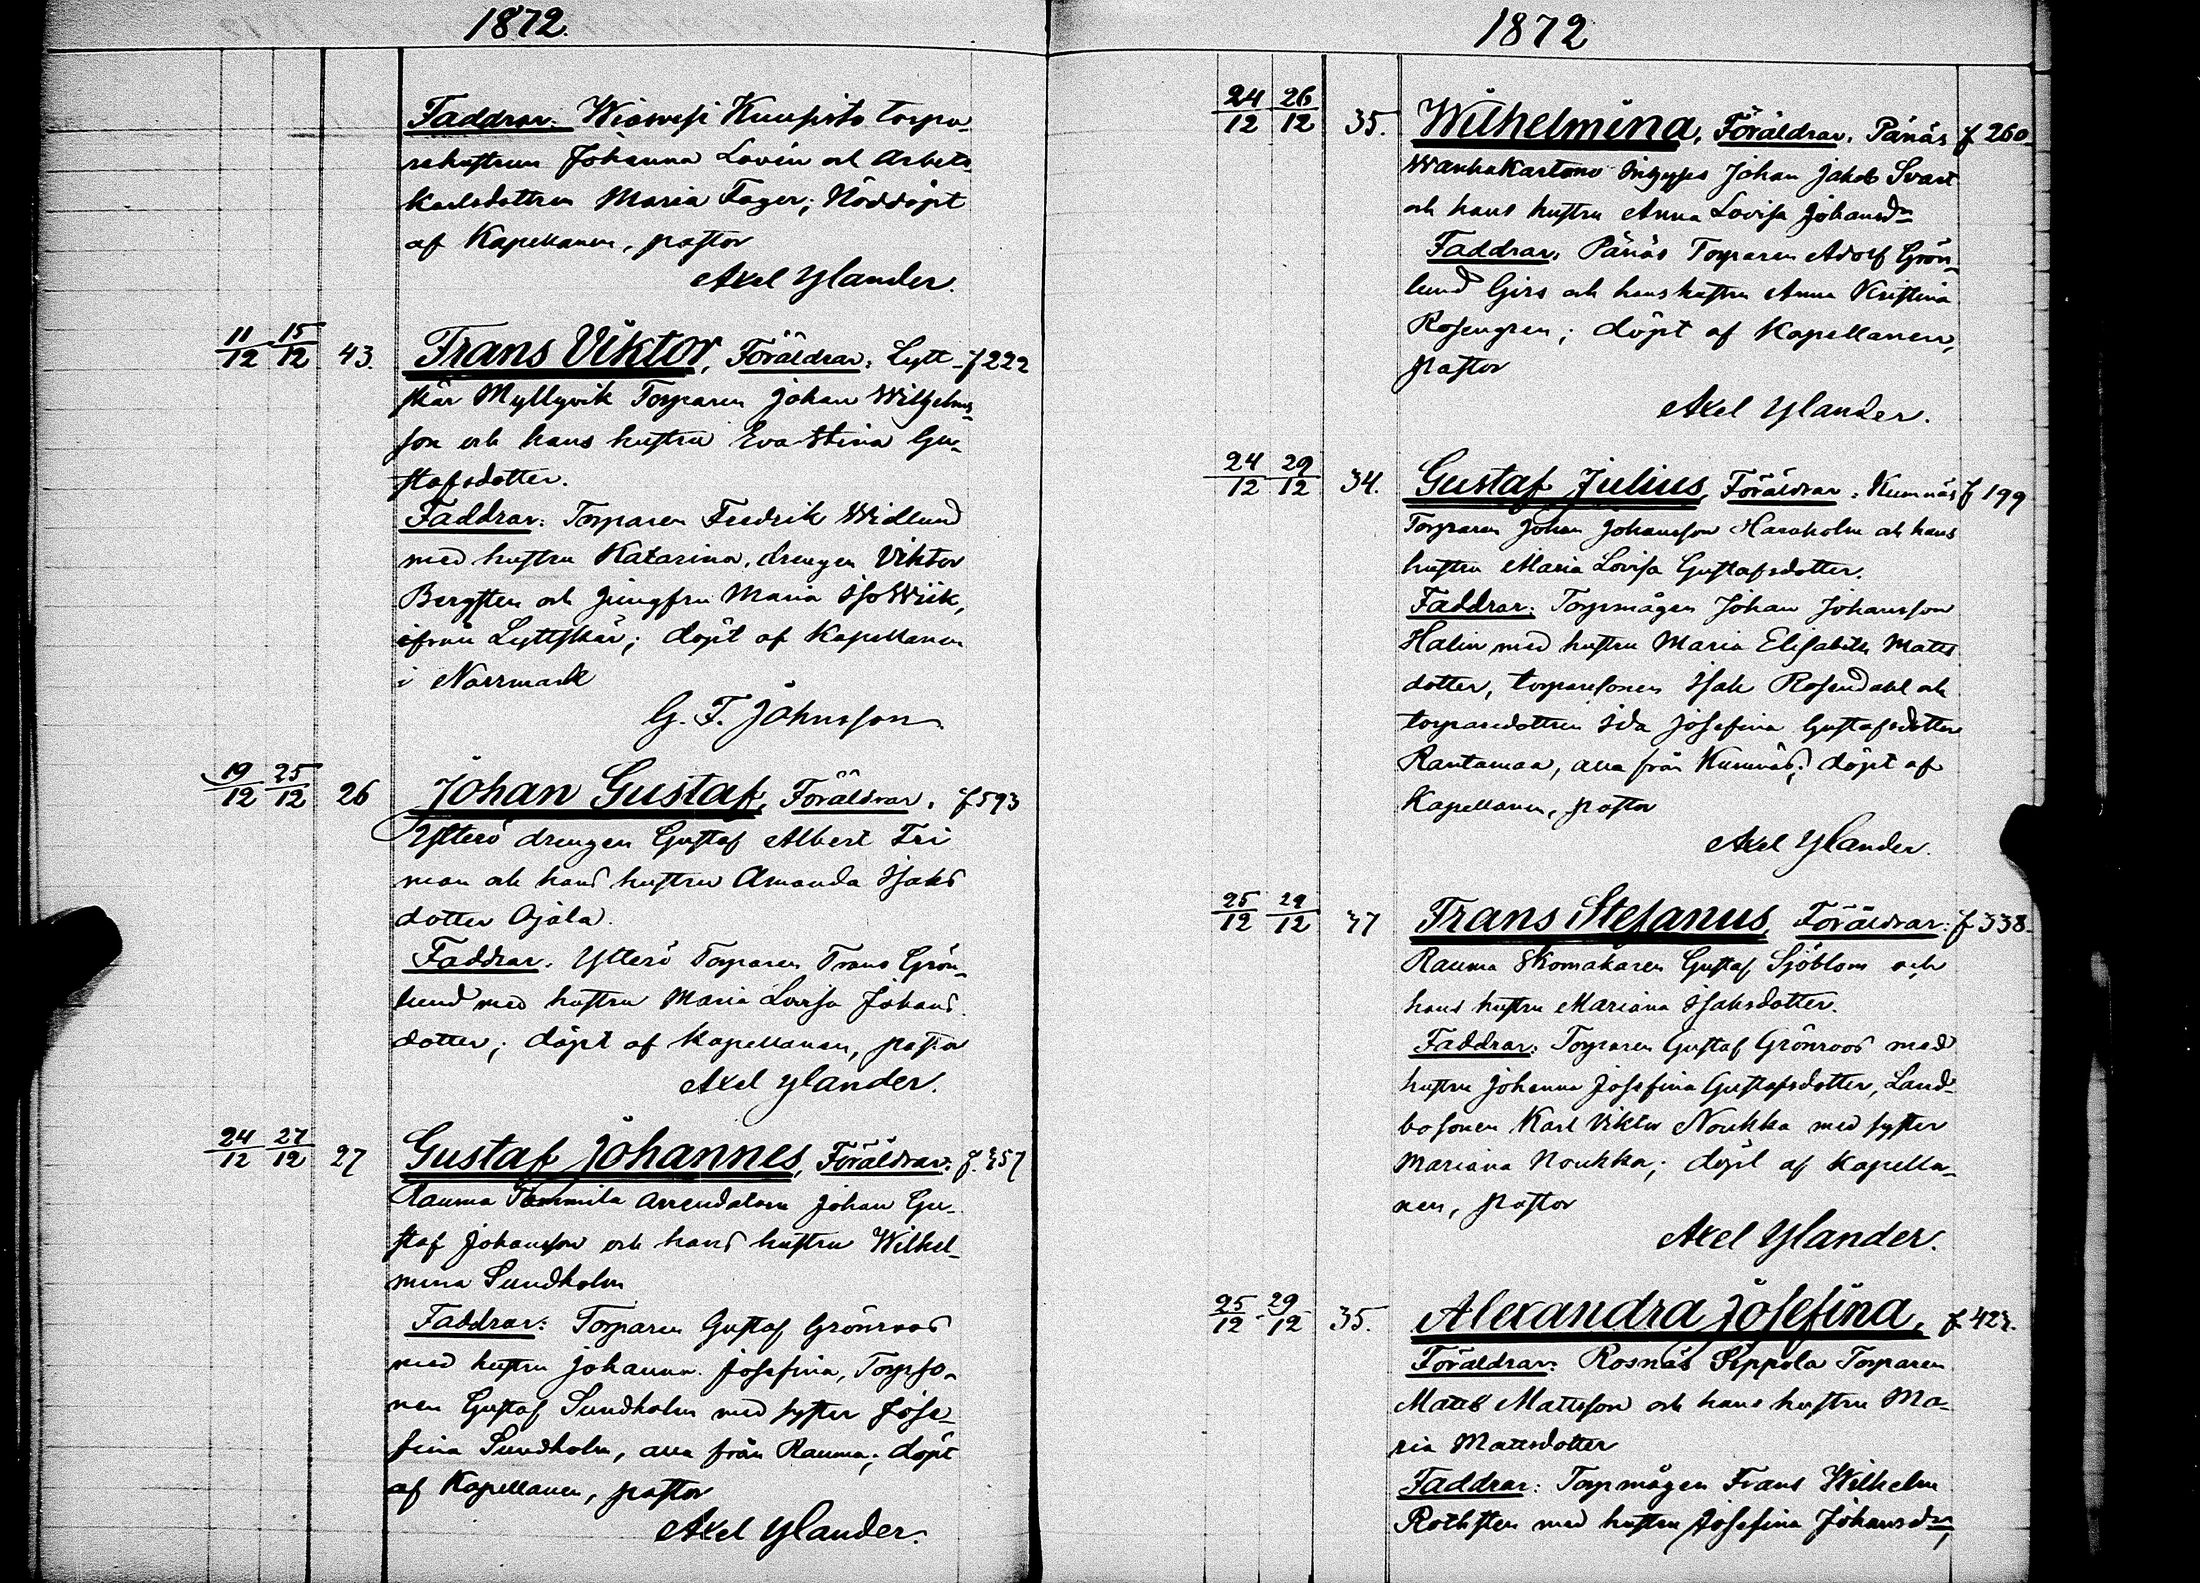 1872.
Faddrar: Torpa-
rehustrun Johanna Lovén och Arbets-
karlsdottren Maria Fager; Nöddöpt
af Kapellanen, pastor
Axel Ylander.
11/12 15/12 43. Frans Viktor, Föräldrar: Lytt- f 222
skär Myllyvik Torparen Johan Wilhelms-
son och hans hustru Eva Stina Gu-
stafsdotter.
Faddrar: Torparen Fredrik Widlund
med hustru Katarina, drengen Viktor
Bergsten och jungfru Maria Iso Wiik,
ifrån Lyttskär; döpt af Kapellanen
i Norrmark
G. F. Johnsson
19/12 25/12 26 Johan Gustaf, Föräldrar: f 593
Ytterö drengen Gustaf Albert Fri
man och hans hustru Amanda Isaks
dotter Ojala.
Faddrar: Ytterö Torparen Frans Grön-
lund med hustru Maria Lovisa Johans
dotter; döpt af Kapellanen, pastor
Axel Ylander.
24/12 27/12 27 Gustaf Johannes, Föräldrar: f. 357
Rauma Tommila Arrendatorn Johan Gu-
staf Johansson och hans hustru Wilhel-
mina Sundholm
Faddrar: Torparen Gustaf Grönroos
med hustru Johanna Josefina, Torpso-
nen Gustaf Sundholm med syster Jose-
fina Sundholm, alla från Rauma; döpt
af Kapellanen, pastor
Axel Ylander.
1872
24/12 26/12 35. Wilhelmina, Föräldrar: Pänäs f 260
Wanhakartano Johan Jakob Svart
och hans hustru Anna Lovisa Johansdr
Faddrar: Pänäs Torparen Adolf Grön-
lund Girs och hans hustru Anna Kristina
Rosengren; döpt af Kapellanen,
pastor
Axel Ylander.
24/12 29/12 34. Gustaf Julius, Föräldrar: Kumnäs f 199
Torparen Johan Johansson Haraholm och hans
hustru Maria Lovisa Gustafsdotter.
Faddrar: Torpmågen Johan Johansson
Halin med hustru Maria Elisabeth Matts
dotter, torparesonen Isak Rosendahl och
torparedottren Ida Josefina Gustafsdotter
Rantamaa, alla från Kumnäs; döpt af
Kapellanen, pastor
Axel Ylander.
25/12 29/12 37 Frans Stefanus, Föräldrar: f 338
Rauma Skomakaren Gustaf Sjöblom och
hans hustru Mariana Isaksdotter.
Faddrar: Torparen Gustaf Grönroos med
hustru Johanna Josefina Gustafsdotter, Land-
bosonen Karl Viktor Noukka med syster
Mariana Noukka; döpt af Kapella-
nen, pastor
Axel Ylander.
25/12 29/12 35. Alexandra Josefina, f 423.
Föräldrar: Rosnäs Seppola Torparen
Matts Mattsson och hans hustru Ma-
ria Mattsdotter
Faddrar: Torpmågen Frans Wilhelm
Rothsten med hustru Josefina Johansdr,